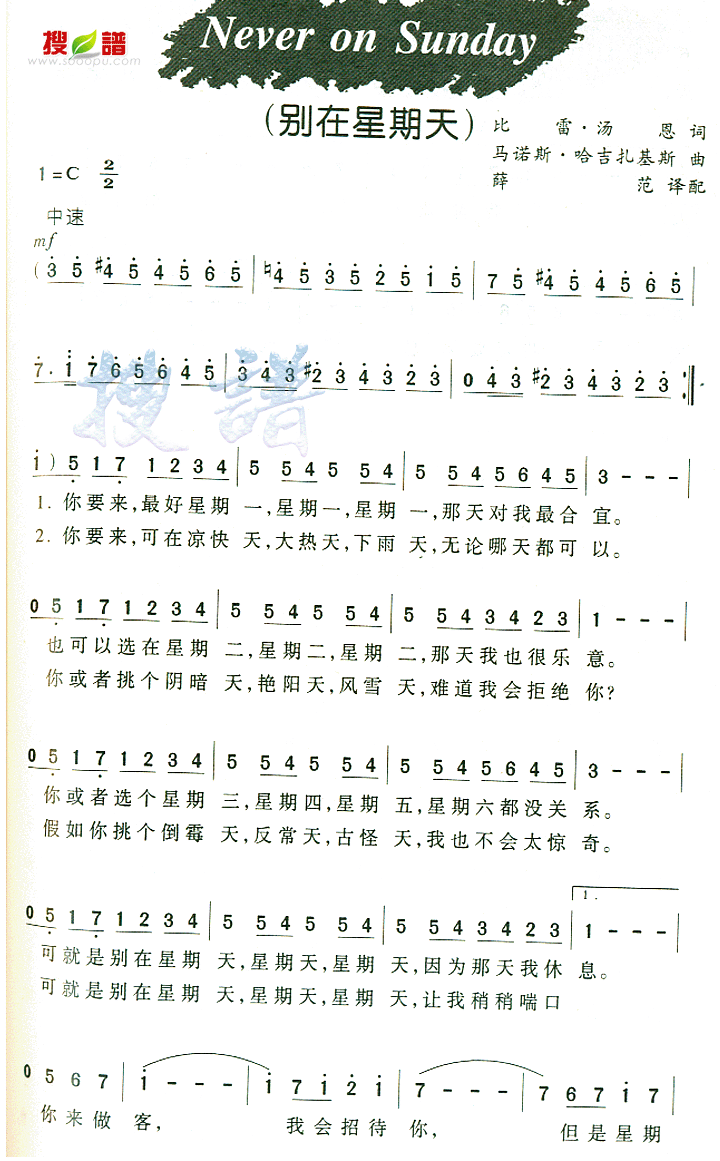 搜譜
www.sooopu.com
Never on Sunday
(别在星期天)
比雷·汤恩 词
马诺斯·哈吉扎基斯 曲
薛范 译配
1=C 2/2
中速
mf
(3 5 #4 5 4 5 6 5 | ♮4 5 3 5 2 5 1 5 | 7 5 #4 5 4 5 6 5 |
7. 1 7 6 5 6 4 5 | 3 4 3 #2 3 4 3 2 3 | 0 4 3 #2 3 4 3 2 3 :||
1) 5 1 7 1 2 3 4 | 5 5 4 5 5 4 | 5 5 4 5 6 4 5 | 3 - - - |
1. 你要来,最好星期 一,星期一,星期 一,那天对我最合 宜。
2. 你要来,可在凉快 天,大热天,下雨 天,无论哪天都可 以。
0 5 1 7 1 2 3 4 | 5 5 4 5 5 4 | 5 5 4 3 4 2 3 | 1 - - - |
也可以选在星期 二,星期二,星期 二,那天我也很乐 意。
你或者挑个阴暗 天,艳阳天,风雪 天,难道我会拒绝 你?
0 5 1 7 1 2 3 4 | 5 5 4 5 5 4 | 5 5 4 5 6 4 5 | 3 - - - |
你或者选个星期 三,星期四,星期 五,星期六都没关 系。
假如你挑个倒霉 天,反常天,古怪 天,我也不会太惊 奇。
1.
0 5 1 7 1 2 3 4 | 5 5 4 5 5 4 | 5 5 4 3 4 2 3 | 1 - - - |
可就是别在星期 天,星期天,星期 天,因为那天我休 息。
可就是别在星期 天,星期天,星期 天,让我稍稍喘口
0 5 6 7 | 1 - - - | 1 7 1 2 1 | 7 - - - | 7 6 7 1 7 |
你来做 客, 我会招待 你, 但是星期